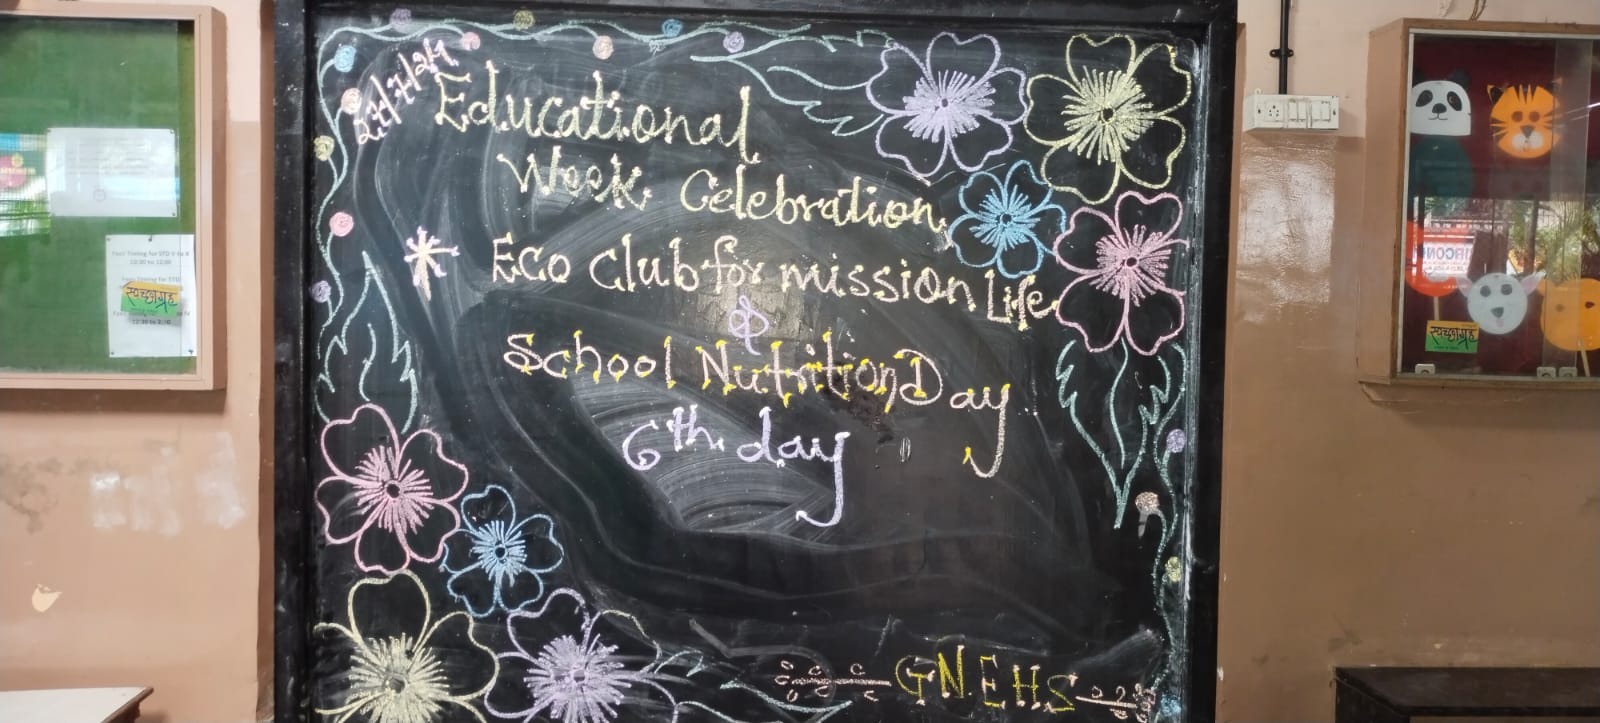 27/7/24
Educational
Week Celebration
Eco Club for mission Life
&
School Nutrition Day
6th day
G.N.E.H.S
Fees Timing for STD V to X
10:00 to 12:00
Fees Timing for STD
स्वच्छाग्रह
12:30 to
स्वच्छाग्रह